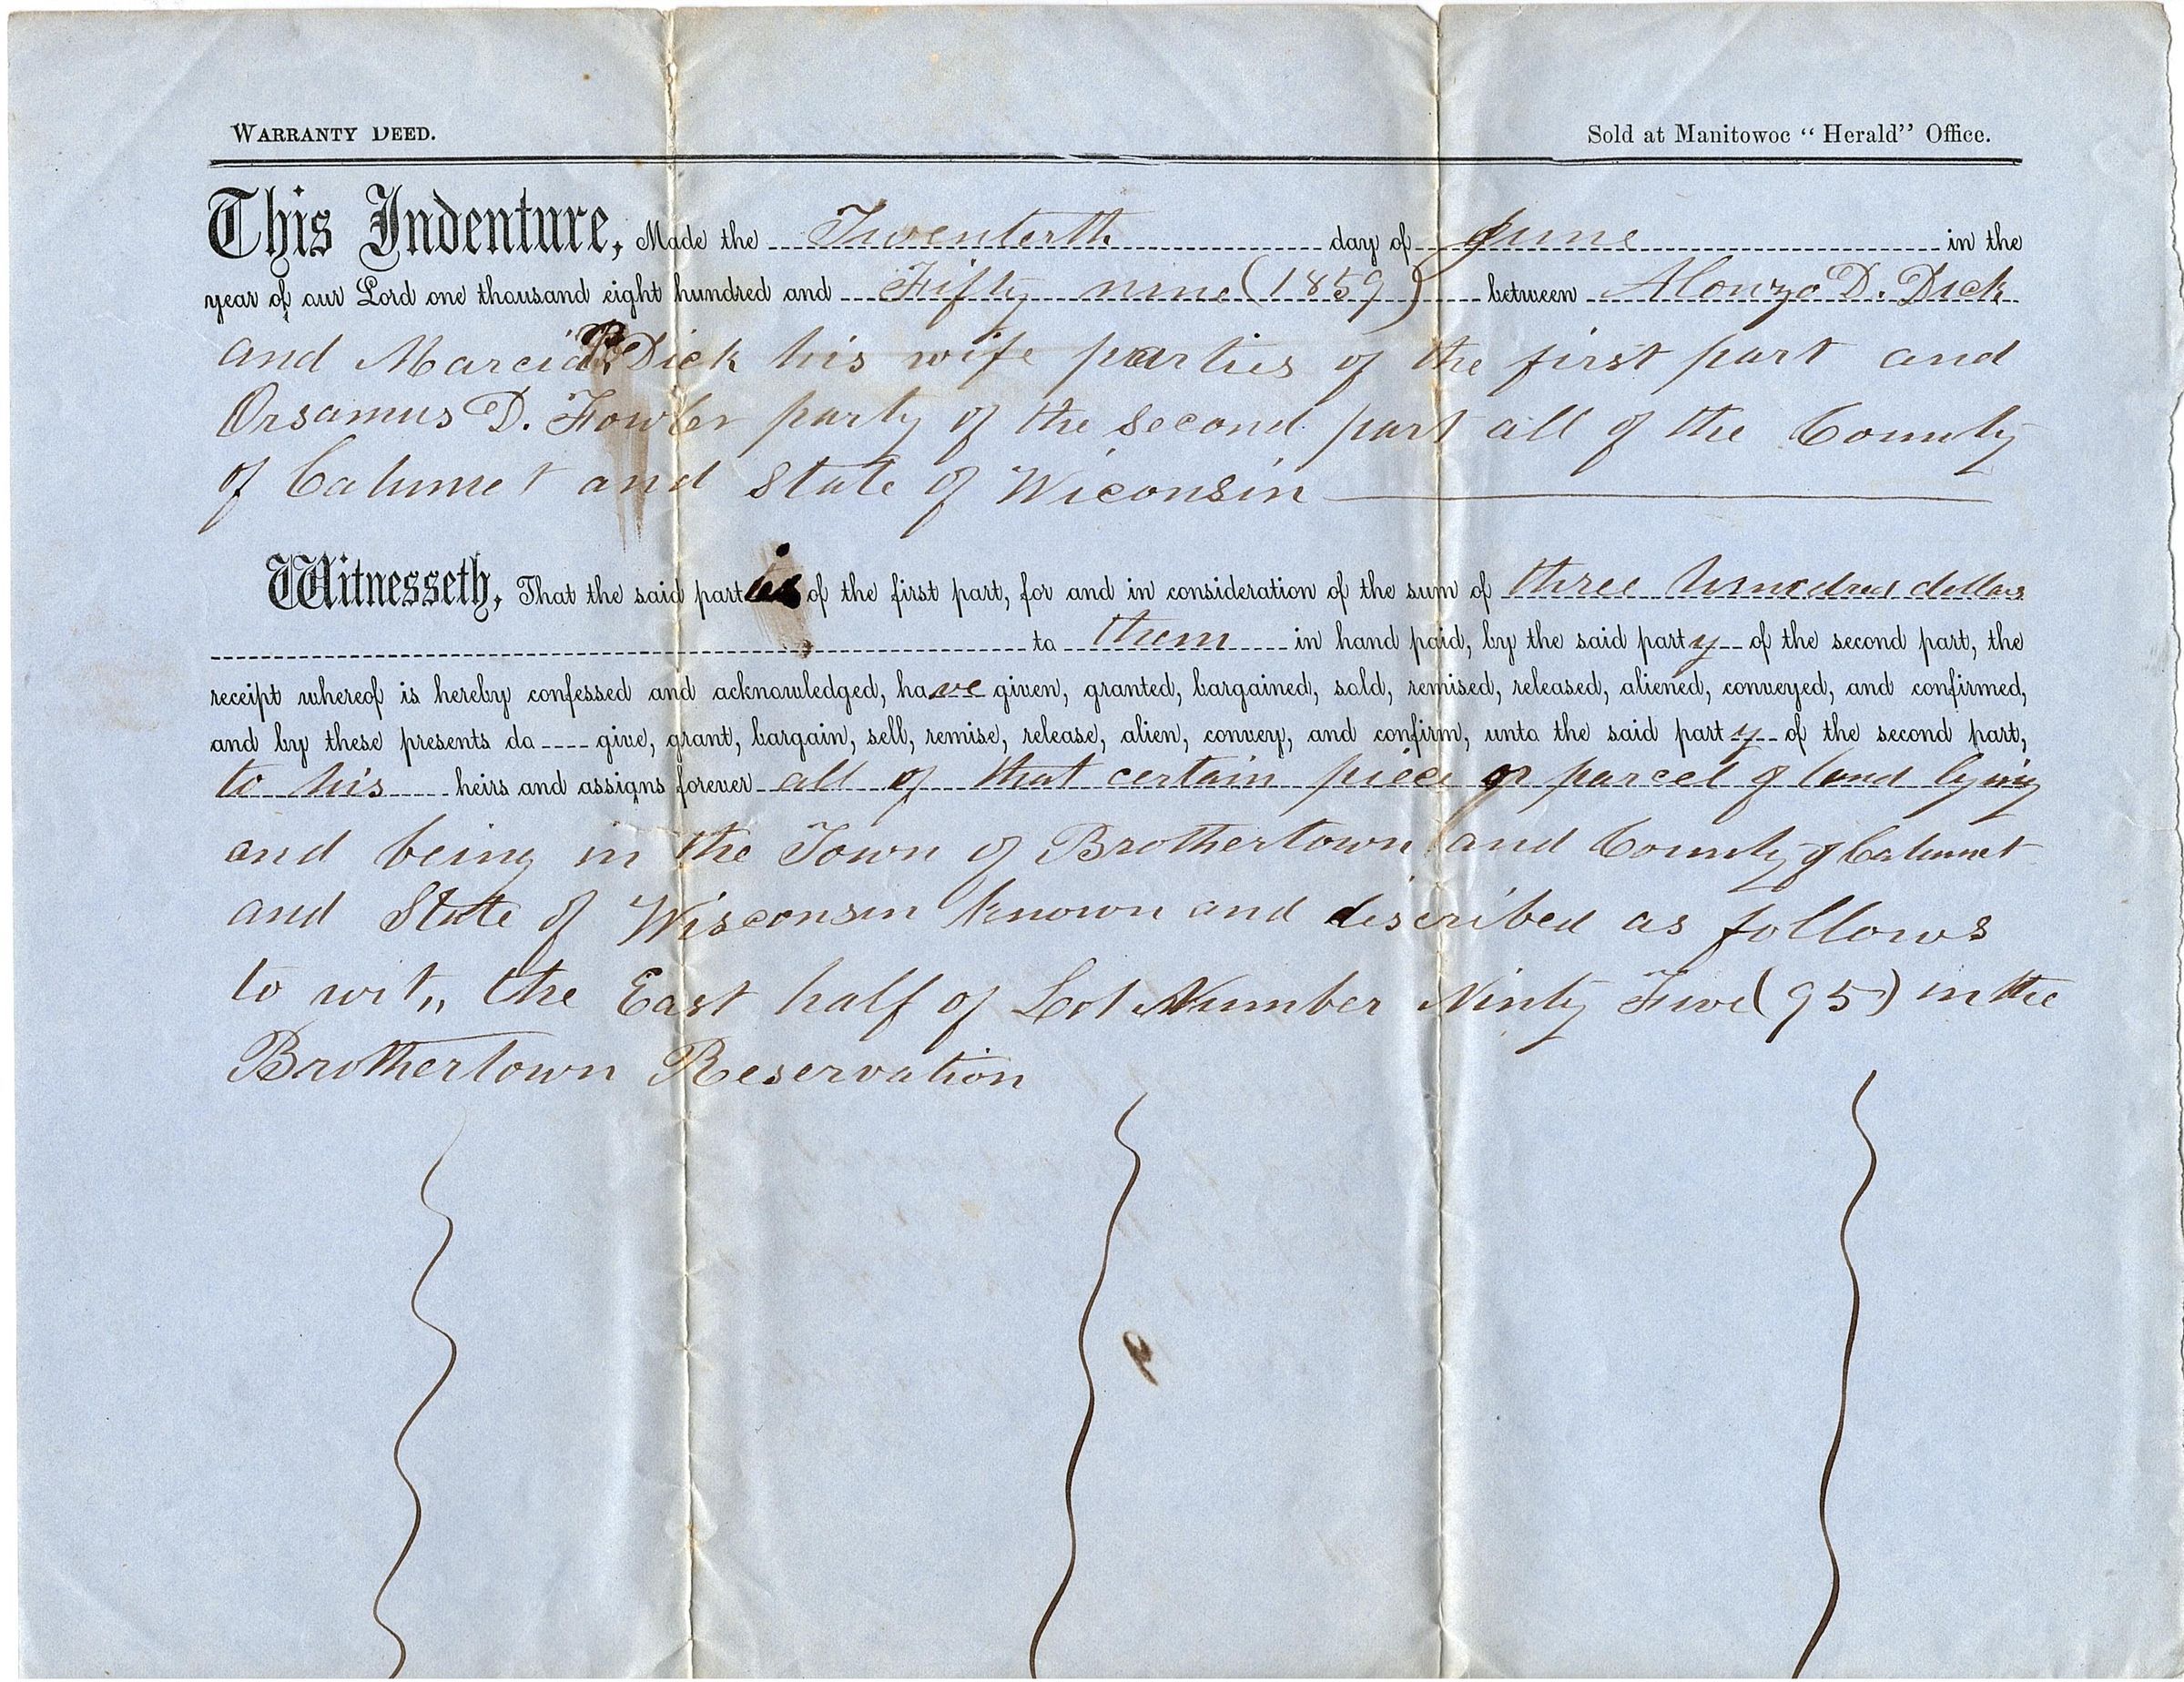 WARRANTY DEED.
Sold at Manitowoc "Herald" Office.
This Indenture, Made the Twentieth day of June in the
year of our Lord one thousand eight hundred and Fifty nine (1859) between Alonzo D. Dick
and Marcia R. Dick his wife parties of the first part and
Orsamus D. Fowler party of the second part all of the County
of Calumet and State of Wiconsin
Witnesseth, That the said parties of the first part, for and in consideration of the sum of three hundred dollars
to them in hand paid, by the said party of the second part, the
receipt whereof is hereby confessed and acknowledged, have given, granted, bargained, sold, remised, released, aliened, conveyed, and confirmed,
and by these presents do give, grant, bargain, sell, remise, release, alien, convey, and confirm, unto the said party of the second part,
to his heirs and assigns forever all of that certain piece or parcel of land lying
and being in the Town of Brothertown and County of Calumet
and State of Wisconsin known and described as follows
to wit,, the East half of Lot Number Ninty Five (95) in the
Brothertown Reservation